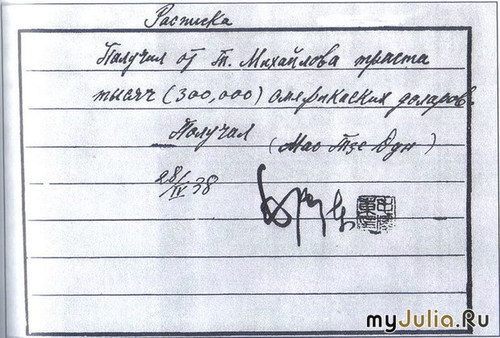 Расписка
Получил от Т. Михайлова триста
тысяч (300,000) американских доларов.
Получил (Мао Тзе Дун)
28/IV 38
myJulia.Ru